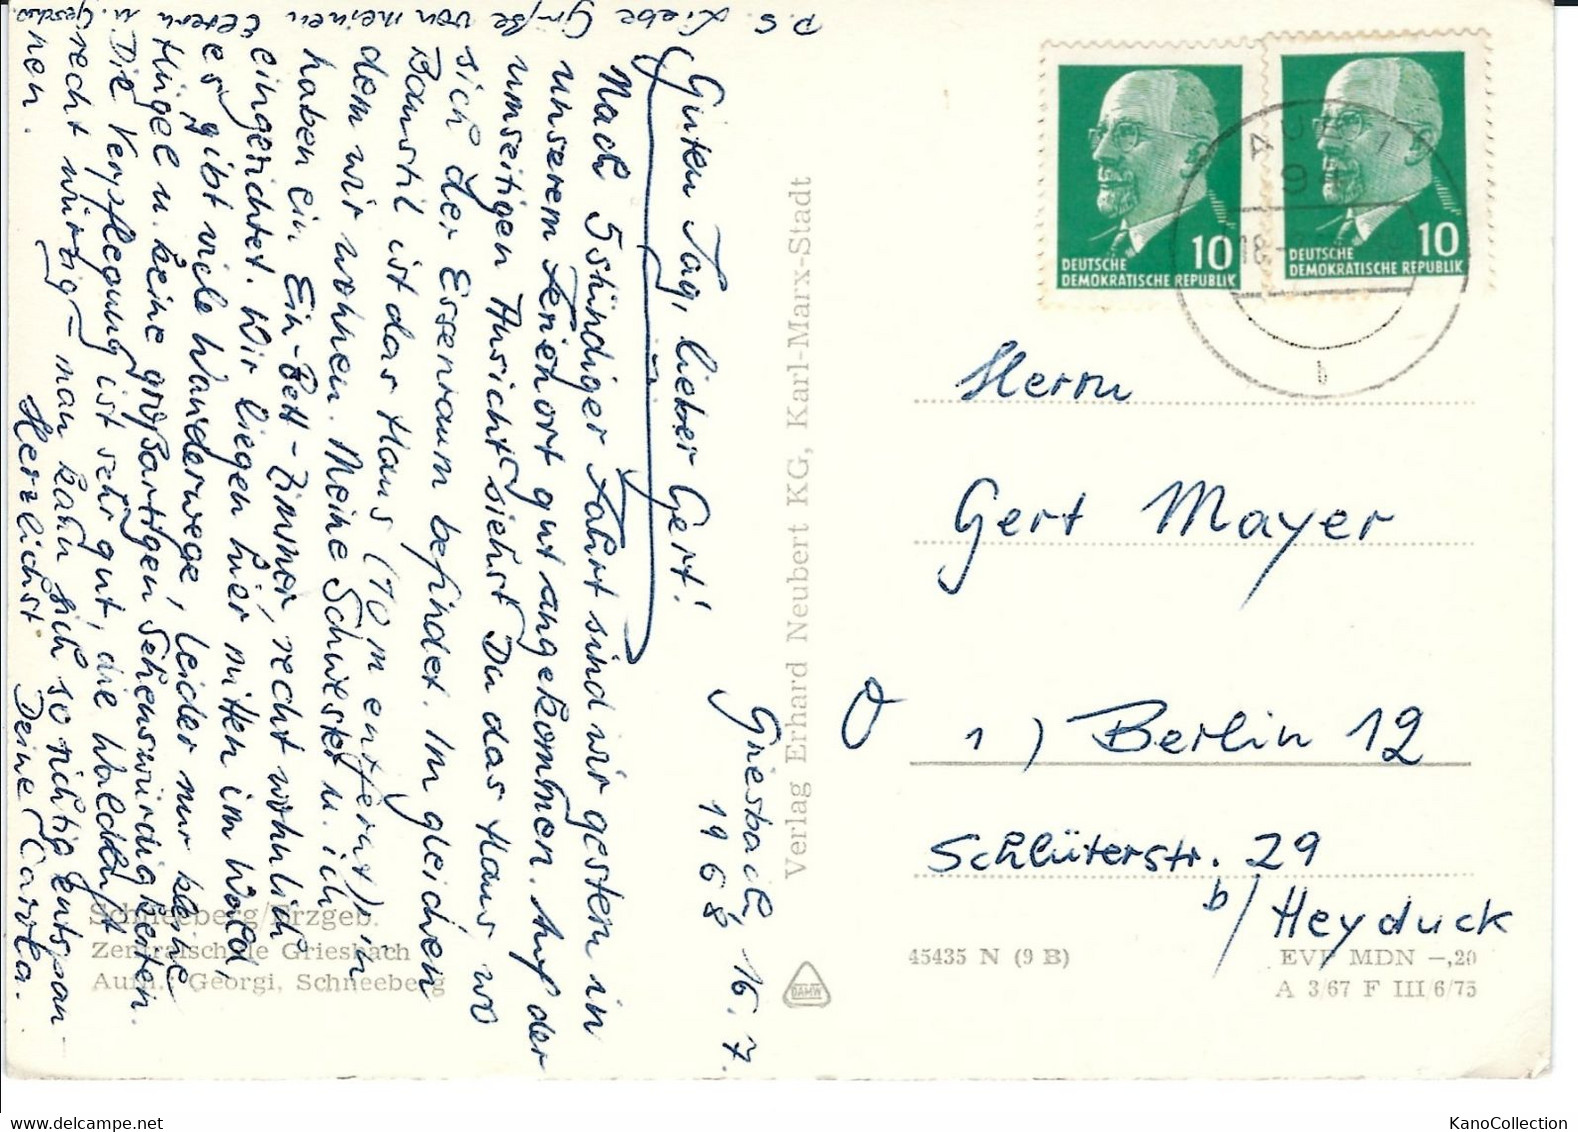 Griesbach, 16.7.
1968
Guten Tag, lieber Gert!
Nach 5stündiger Fahrt sind wir gestern in
unserem Ferienort gut angekommen. Auf der
umseitigen Ansicht siehst Du das Haus wo
sich der Essenraum befindet. Im gleichen
Baustil ist das Haus (70 m entfernt) in
dem wir wohnen. Meine Schwester u. ich
haben ein Ein-Bett-Zimmer, recht wohnlich
eingerichtet. Wir liegen hier mitten im Wald,
es gibt viele Wanderwege, leider nur kleine
Hügel u. keine großartigen Sehenswürdigkeiten.
Die Verpflegung ist sehr gut, die Waldluft
recht würzig - man kann sich so richtig entspan-
nen.
Herzlichst Deine Carla.
P.S. Liebe Grüße von meinen Eltern u. Geschw.
Schneeberg/Erzgeb.
Zentralschule Griesbach
Aufn.: Georgi, Schneeberg
Verlag Erhard Neubert KG, Karl-Marx-Stadt
DEUTSCHE
DEMOKRATISCHE REPUBLIK
10
DEUTSCHE
DEMOKRATISCHE REPUBLIK
10
b
Herrn
Gert Mayer
O
1) Berlin 12
Schlüterstr. 29
b/ Heyduck
45435 N (9 B)
EVP MDN -,20
A 3/67 F III/6/75
KanoCollection